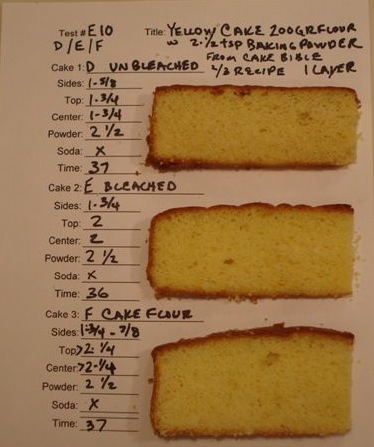 Test # E10 Title: YELLOW CAKE 200GR FLOUR
D/E/F w 2-1/2 tsp BAKING POWDER
FROM CAKE BIBLE
Cake 1: D UNBLEACHED 1/2 RECIPE 1 LAYER
Sides: 1-5/8
Top: 1-3/4
Center: 1-3/4
Powder: 2 1/2
Soda: X
Time: 37
Cake 2: E BLEACHED
Sides: 1-3/4
Top: 2
Center: 2
Powder: 2 1/2
Soda: X
Time: 36
Cake 3: F CAKE FLOUR
Sides: 1-3/4 - 7/8
Top: >2-1/4
Center: >2-1/4
Powder: 2 1/2
Soda: X
Time: 37